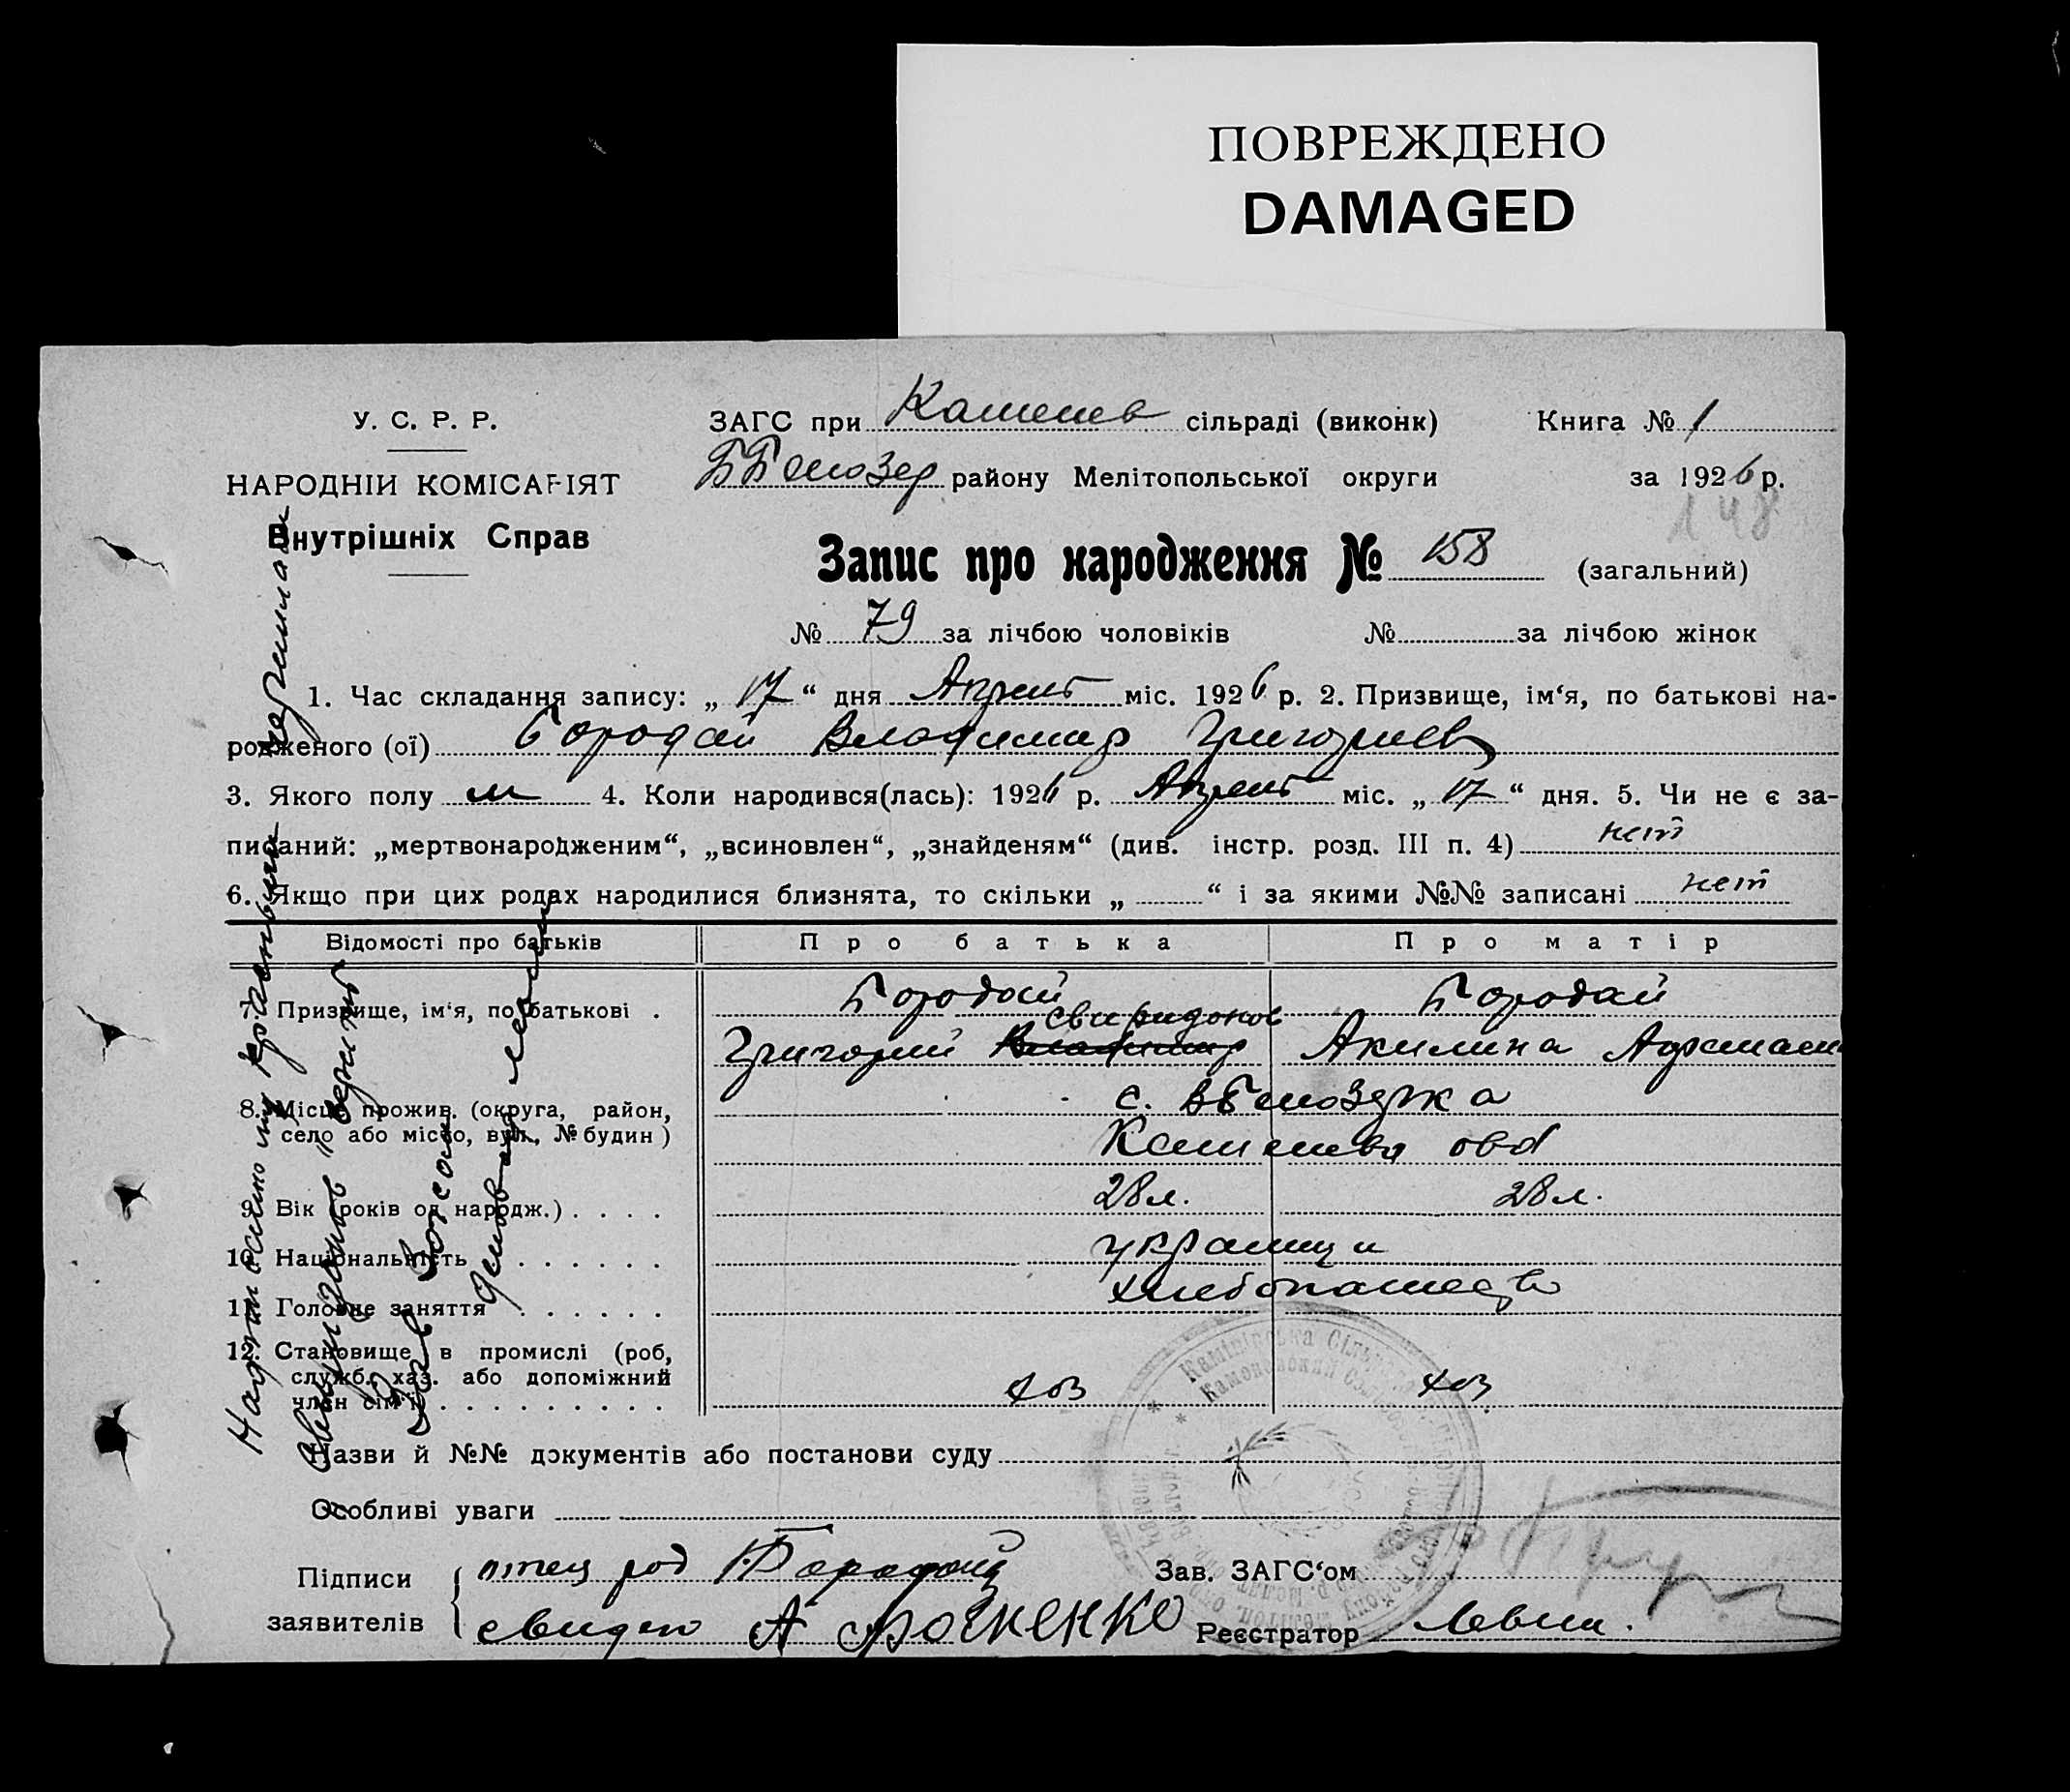 ПОВРЕЖДЕНО
DAMAGED
У. С. Р. Р.
НАРОДНІЙ КОМІСАРІЯТ
Внутрішніх Справ
ЗАГС при Каменев сільраді (виконк) Книга № 1
ББелозер району Мелітопольської округи за 1926 р.
148
Запис про народження № 158 (загальний)
№ 79 за лічбою чоловіків № за лічбою жінок
1. Час складання запису: „ 17 “ дня Апрель міс. 1926 р. 2. Призвище, ім‘я, по батькові на-
родженого (ої) Бородай Владимир Григориев
3. Якого полу м 4. Коли народився(лась): 1926 р. Апрель міс. „ 17 “ дня. 5. Чи не є за-
писаний: „мертвонародженим“, „всиновлен“, „знайденям“ (див. інстр. розд. III п. 4) нет
6. Якщо при цих родах народилися близнята, то скільки „ “ і за якими №№ записані нет
Відомості про батьків Про батька Про матір
7. Призвище, ім‘я, по батькові . Бородай Бородай
Свиридонов
Григорий Владимир Акилина
8. Місце прожив. (округа, район, с. ББелозерка
село або місто, вул., № будин)
9. Вік (років од народж.) . . . . 28 л. 28 л.
10. Національність . . . . . . украинци
11. Головне заняття . . . . . . хлебопашество
12. Становище в промислі (роб,
служб., хаз. або допоміжний
член сім‘ї) . . . . . . . . . хоз хоз.
Назви й №№ документів або постанови суду
Особливі уваги
Підписи отец род Зав. ЗАГС‘ом
заявителів свидет А Реєстратор